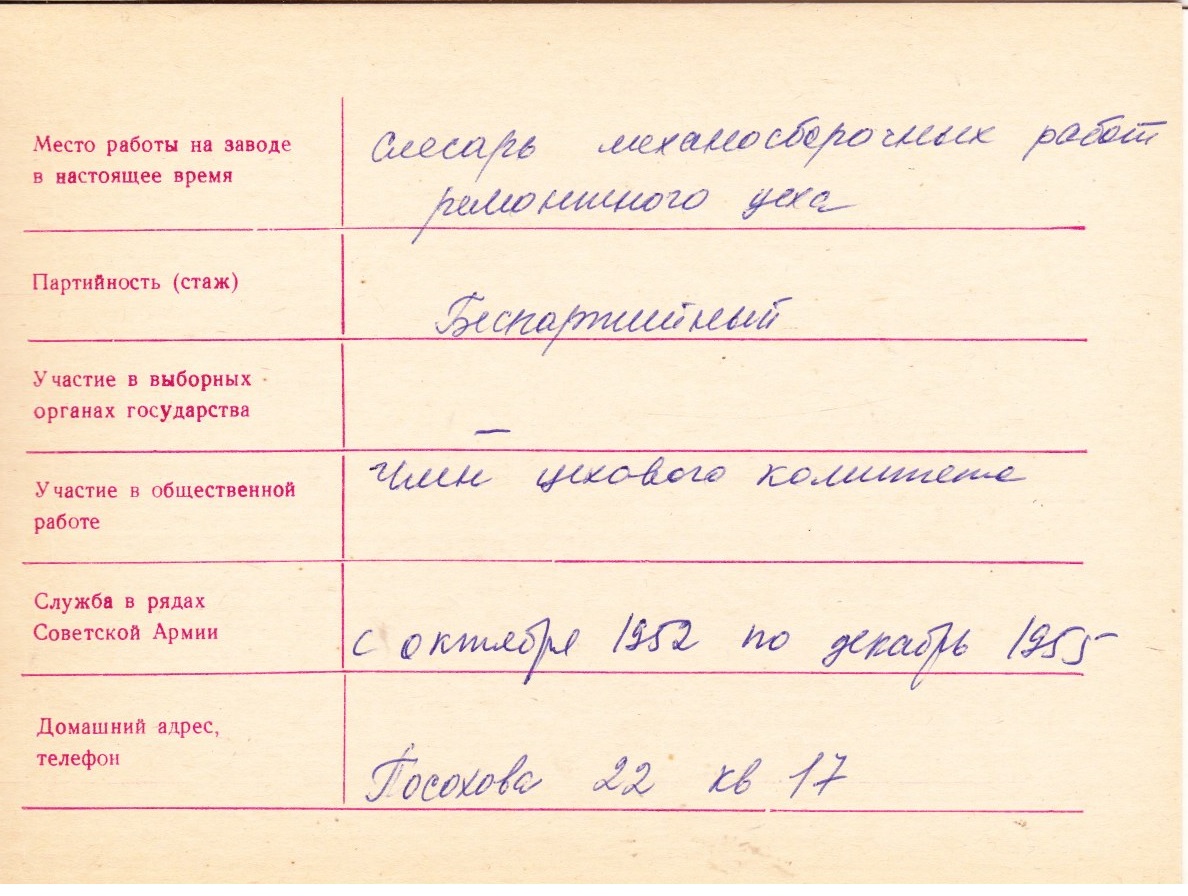 Место работы на заводе
в настоящее время
слесарь механосборочных работ
ремонтного цеха
Партийность (стаж)
Беспартийный
Участие в выборных
органах государства
—
Участие в общественной
работе
Член цехового комитета
Служба в рядах
Советской Армии
с октября 1952 по декабрь 1955
Домашний адрес,
телефон
Посохова 22 кв 17